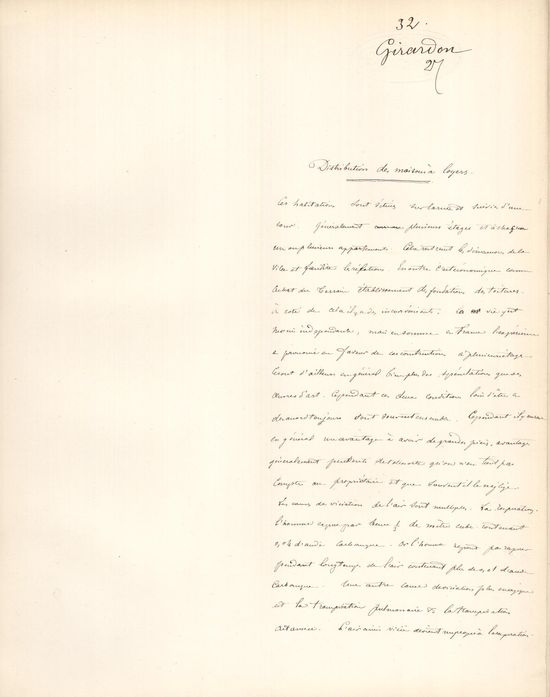 32.
Girardon
Distribution des maisons à loyers.
Ces habitations sont situées sur la rue et suivies d'une
cour. Généralement plusieurs étages et à chaque
un ou plusieurs appartements. Cela restreint les dimensions de la
ville et facilite les relations. En outre c'est économique comme
achat du terrain établissement de fondation des toitures.
à côté de cela il y a des inconvénients. la vie y est
moins indépendante, mais en somme en France l'expérience
a prononcé en faveur de ces constructions à plusieurs étages
Ce sont d'ailleurs en général bien plus des spéculations que des
œuvres d'art. Cependant ces deux conditions loin d'être en
désaccord toujours sont souvent ensemble. Cependant il y aura
en général un avantage à avoir de grandes pièces, avantage
généralement de telle sorte qu'on n'en tient pas
compte au propriétaire et que souvent il le néglige.
Les causes de viciation de l'air sont multiples. La respiration.
L'homme expire par heure de mètre cube contenant
0,04 d'acide carbonique. Or l'homme ne peut pas respirer
pendant longtemps de l'air contenant plus de d'acide
carbonique. Une autre cause de viciation plus énergique
est la transpiration pulmonaire & la transpiration
cutanée. L'air ainsi vicié devient impropre à la respiration.